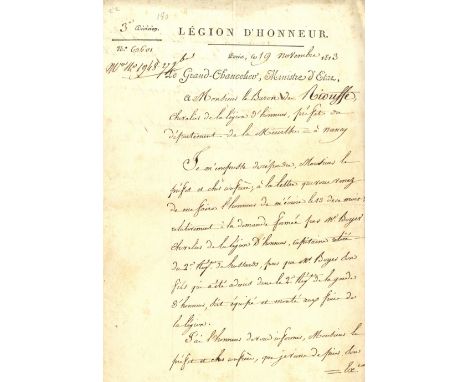 3e Division
LÉGION D'HONNEUR.
No 60601
Paris, le 19 novembre 1813
Le Grand-Chancelier, Ministre d'Etat,
A Monsieur le Baron de Riouffe,
chevalier de la légion d'honneur, préfet du
département de la Meurthe = à nancy
Je m'empresse de répondre, Monsieur le
préfet et cher confrère, à la lettre que vous venez
de me faire l'honneur de m'écrire le 13 de ce mois
relativement à la demande formée par Mr. Boyer
chevalier de la légion d'honneur, capitaine
du 2e Régt. de hussards, pour que Mr. Boyer son
fils qui a été admis dans le 2e Régt. de la garde
d'honneur, soit équipé et monté aux frais de
la légion.
J'ai l'honneur de vous informer, Monsieur le
préfet et cher confrère, que je viens de faire